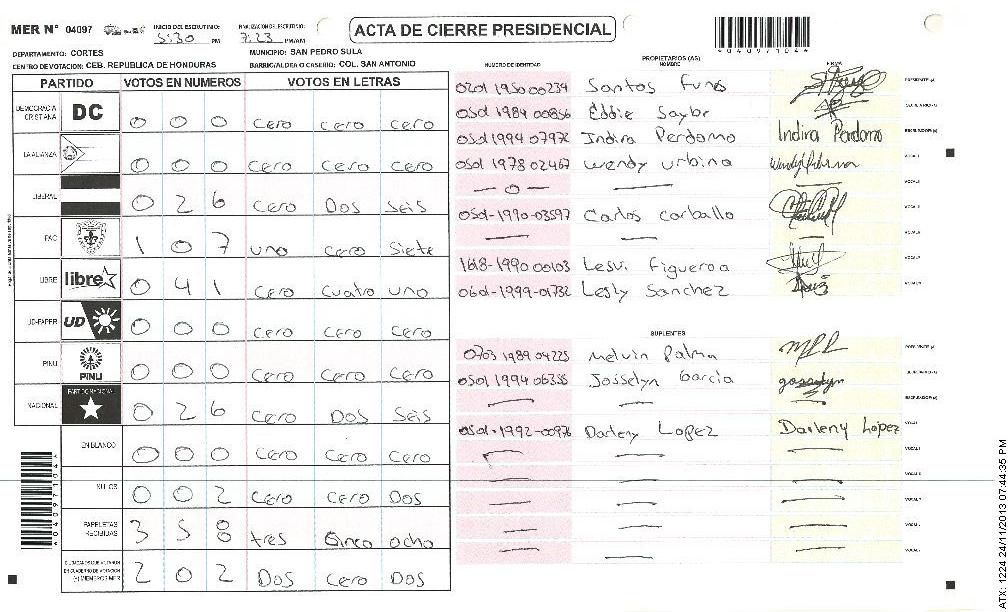 MER N° 04097 INICIO DEL ESCRUTINIO: 5:30 PM FINALIZACION DEL ESCRUTINIO: 7:23 PM/AM
ACTA DE CIERRE PRESIDENCIAL
*040971044*
DEPARTAMENTO: CORTES MUNICIPIO: SAN PEDRO SULA
CENTRO DE VOTACION: CEB. REPUBLICA DE HONDURAS BARRIO/ALDEA O CASERIO: COL. SAN ANTONIO
PARTIDO VOTOS EN NUMEROS VOTOS EN LETRAS
DEMOCRACIA CRISTIANA DC 0 0 0 cero cero cero
LA ALIANZA 0 0 0 cero cero cero
LIBERAL 0 2 6 cero Dos seis
PAC 1 0 7 uno cero siete
LIBRE libre 0 4 1 cero cuatro uno
UD-FAPER UD 0 0 0 cero cero cero
PINU PINU 0 0 0 cero cero cero
NACIONAL PARTIDO NACIONAL 0 2 6 cero Dos seis
EN BLANCO 0 0 0 cero cero cero
NULOS 0 0 2 cero cero Dos
PAPELETAS RECIBIDAS 3 5 8 tres cinco ocho
CIUDADANOS QUE VOTARON EN CUADERNO DE VOTACION (+) MIEMBROS MER 2 0 2 Dos cero Dos
*040971044*
PROPIETARIOS (AS)
NUMERO DE IDENTIDAD NOMBRE FIRMA
0201 1950 00234 Santos Funes PRESIDENTE (A)
0501 1984 00856 Eddie Saybr SECRETARIO (A)
0501 1994 07976 Indira Perdomo Indira Perdomo ESCRUTADOR (A)
0501 1978 02467 wendy urbina VOCAL 1
— 0 — —
0501-1990-03597 Carlos carballo
— —
1618-1990 00103 Lesvi Figueroa
0601-1999-01732 Lesly Sanchez
SUPLENTES
0703 1989 04225 Melvin Palma PRESIDENTE (A)
0501 1994 06355 Josselyn Garcia SECRETARIO (A)
— — — ESCRUTADOR (A)
0501-1992-00976 Darleny Lopez Darleny López VOCAL 1
ATX: 1224 24/11/2013 07:44:35 PM